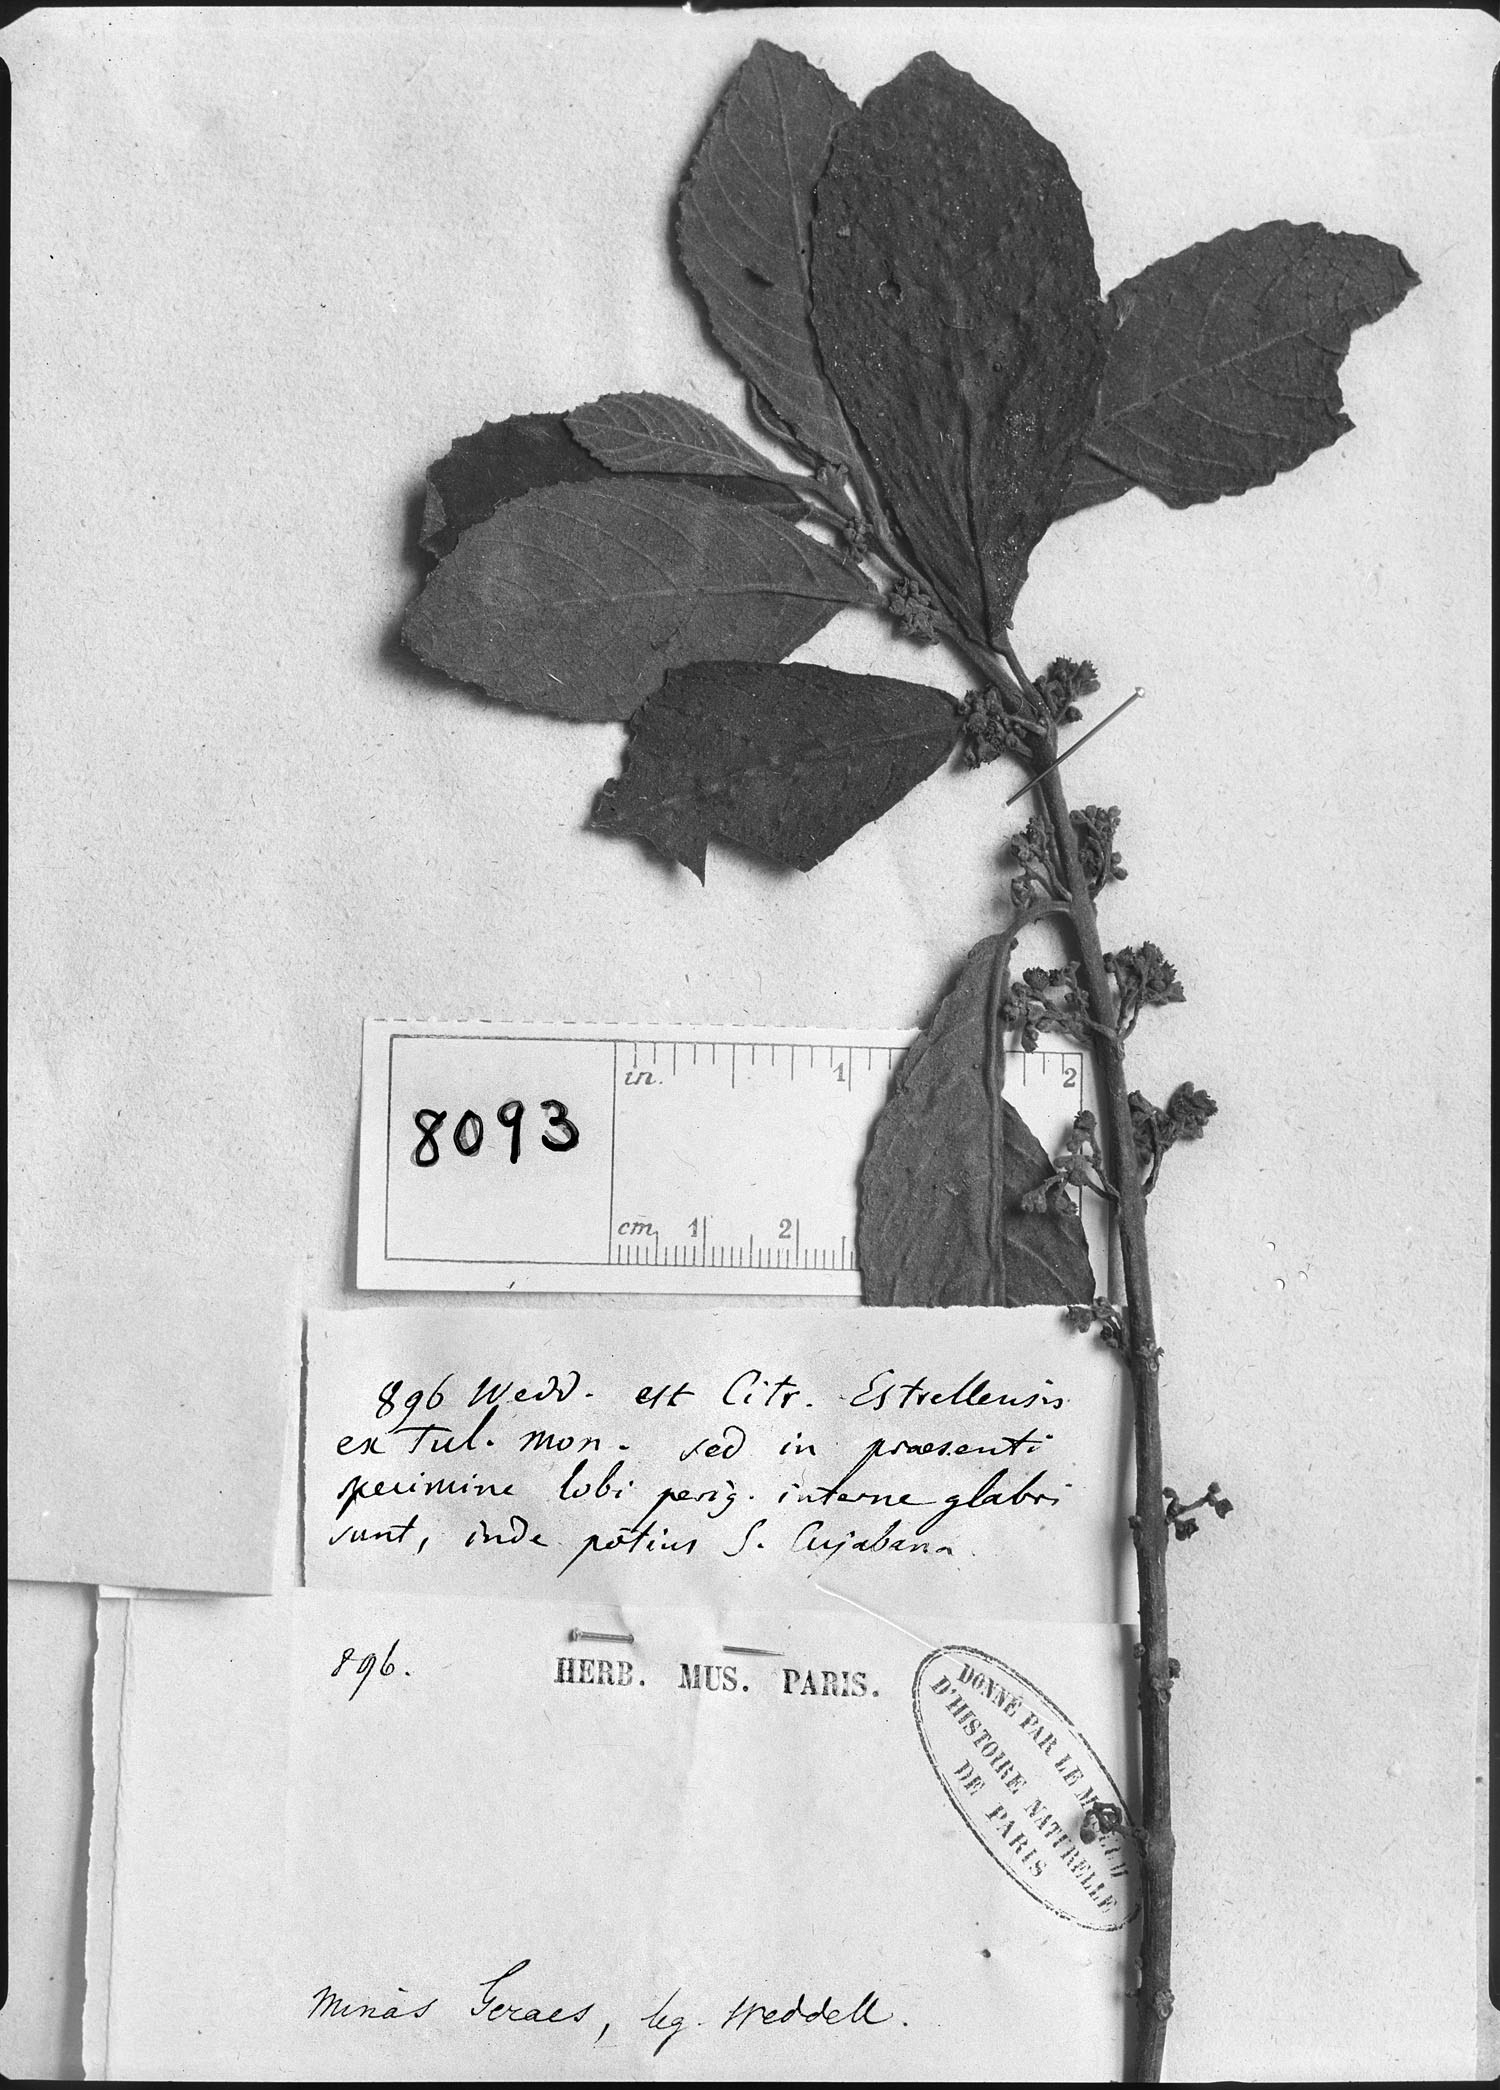 8093
in. 1 2
cm 1 2
896 Wedd. est Citr. Estrellensis
ex Tul. mon. sed in praesenti
specimine lobi perig. interne glabri
sunt, inde potius S. Cujabana.
896.
HERB. MUS. PARIS.
DONNÉ PAR LE MUSEUM
D'HISTOIRE NATURELLE
DE PARIS
Minas Geraes, leg. Weddell.